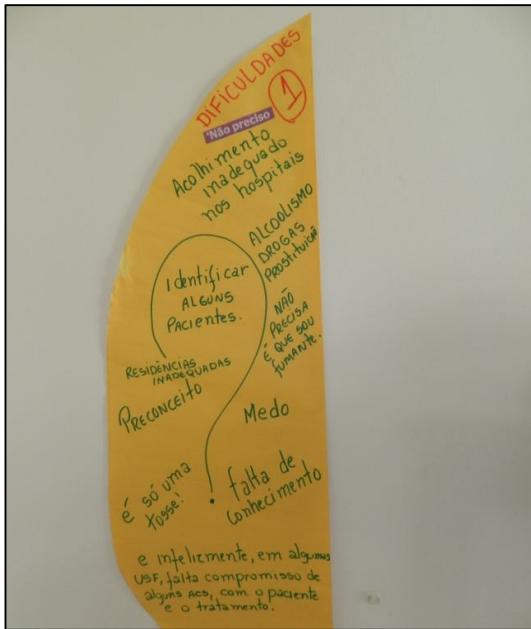 DIFICULDADES
1
"Não preciso
Acolhimento
inadequado
nos hospitais
ALCOOLISMO
DROGAS
PROSTITUIÇÃO
Identificar
ALGUNS
PACIENTES.
NÃO
PRECISA
É QUE SOU
FUMANTE.
RESIDÊNCIAS
INADEQUADAS
PRECONCEITO
Medo
é só uma
tosse!
falta de
conhecimento
e infelizmente, em algumas
USF, falta compromisso de
alguns ACS, com o paciente
e o tratamento.